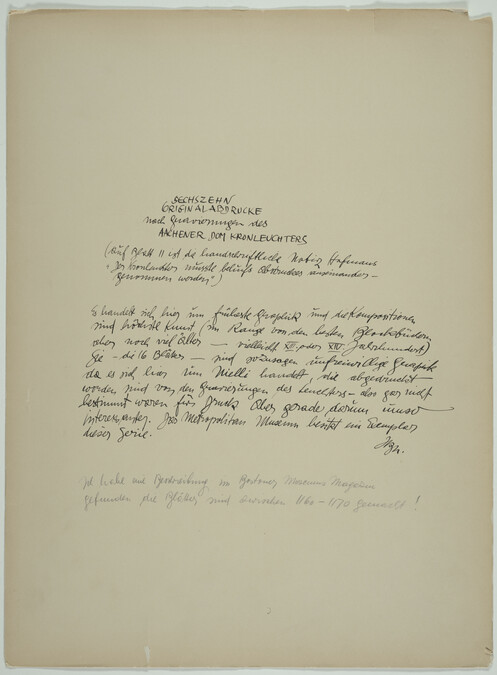 SECHSZEHN
ORIGINALABDRUCKE
nach Gravierungen des
AACHENER DOM KRONLEUCHTERS
(Auf Blatt 11 ist die handschriftliche Notiz Hofmanns
"Der Kronleuchter musste behufs Abdruckes auseinander-
genommen werden")
Es handelt sich hier um früheste Graphik und die Kompositionen
sind höchste Kunst (im Range von den besten Blockbüchern
aber noch viel älter — vielleicht XII. oder XIV. Jahrhundert)
Sie — die 16 Blätter — sind sozusagen unfreiwillige Graphik
da es sich hier um Nielli handelt, die abgedruckt
worden sind von den Gravierungen des Leuchters – das gar nicht
bestimmt waren für Druck. Aber gerade darum umso
interessanter. Das Metropolitan Museum besitzt ein Exemplar
dieser Serie.
Ich habe eine Beschreibung im Bostoner Museums Magazin
gefunden die Blätter sind zwischen 1160–1170 gemacht!